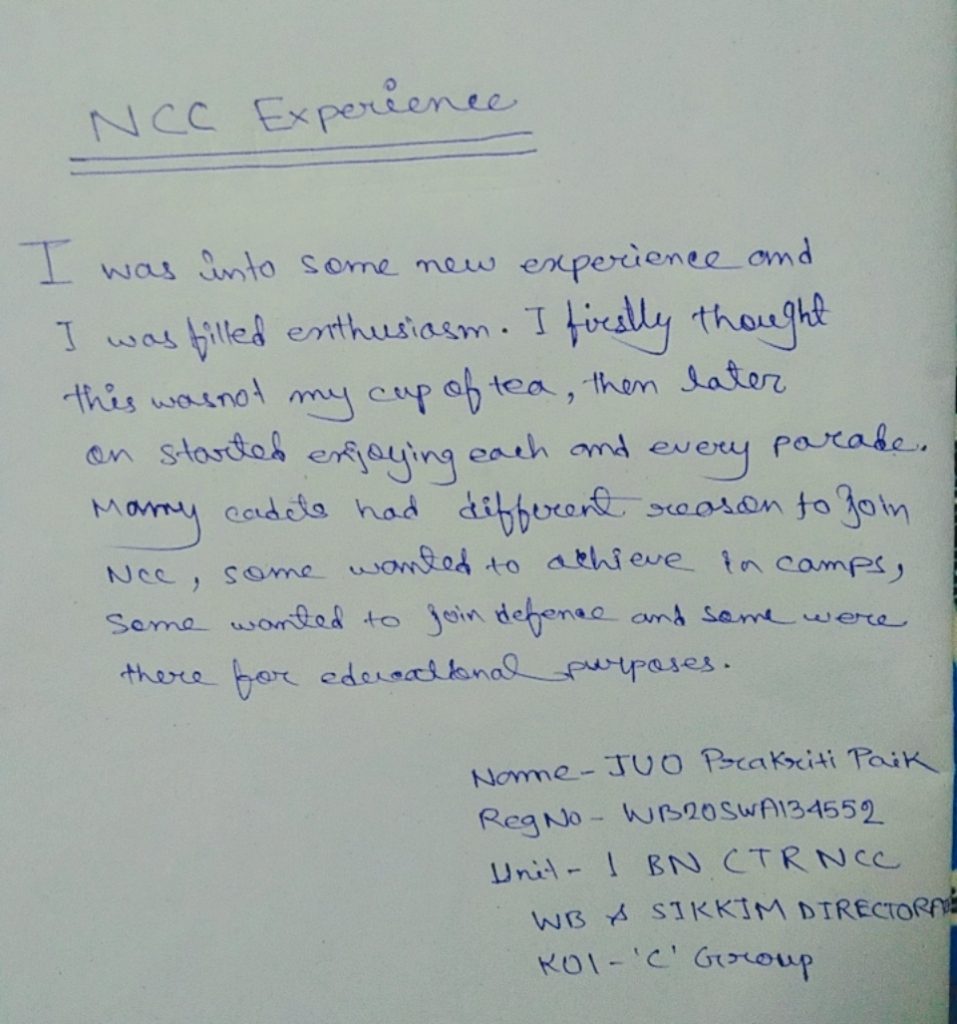 NCC Experience
I was into some new experience and
I was filled enthusiasm. I firstly thought
this wasnot my cup of tea, then later
on started enjoying each and every parade.
Many cadets had different reason to join
NCC, some wanted to achieve in camps,
some wanted to join defence and some were
there for educational purposes.
Name - JUO Prakriti Paik
Reg No - WB20SWA134552
Unit - 1 BN CTR NCC
WB & SIKKIM DIRECTORATE
KOl - 'C' Group